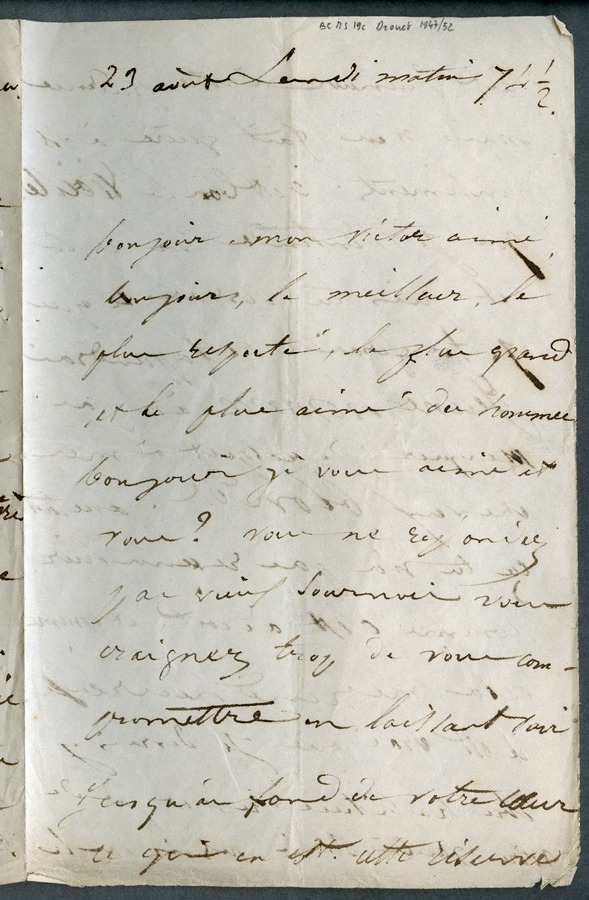 BC MS 19c Drouet 1847/52
23 août Lundi matin 7h ½.
bonjour mon Victor aimé
bonjour, le meilleur, le
plus respecté, le plus grand
et le plus aimé des hommes
bonjour je vous aime et
vous? vous ne répondez
pas vieux sournois vous
craignez trop de vous com-
promettre en laissant voir
jusqu'au fond de votre cœur
ce qui en est. cette réserve